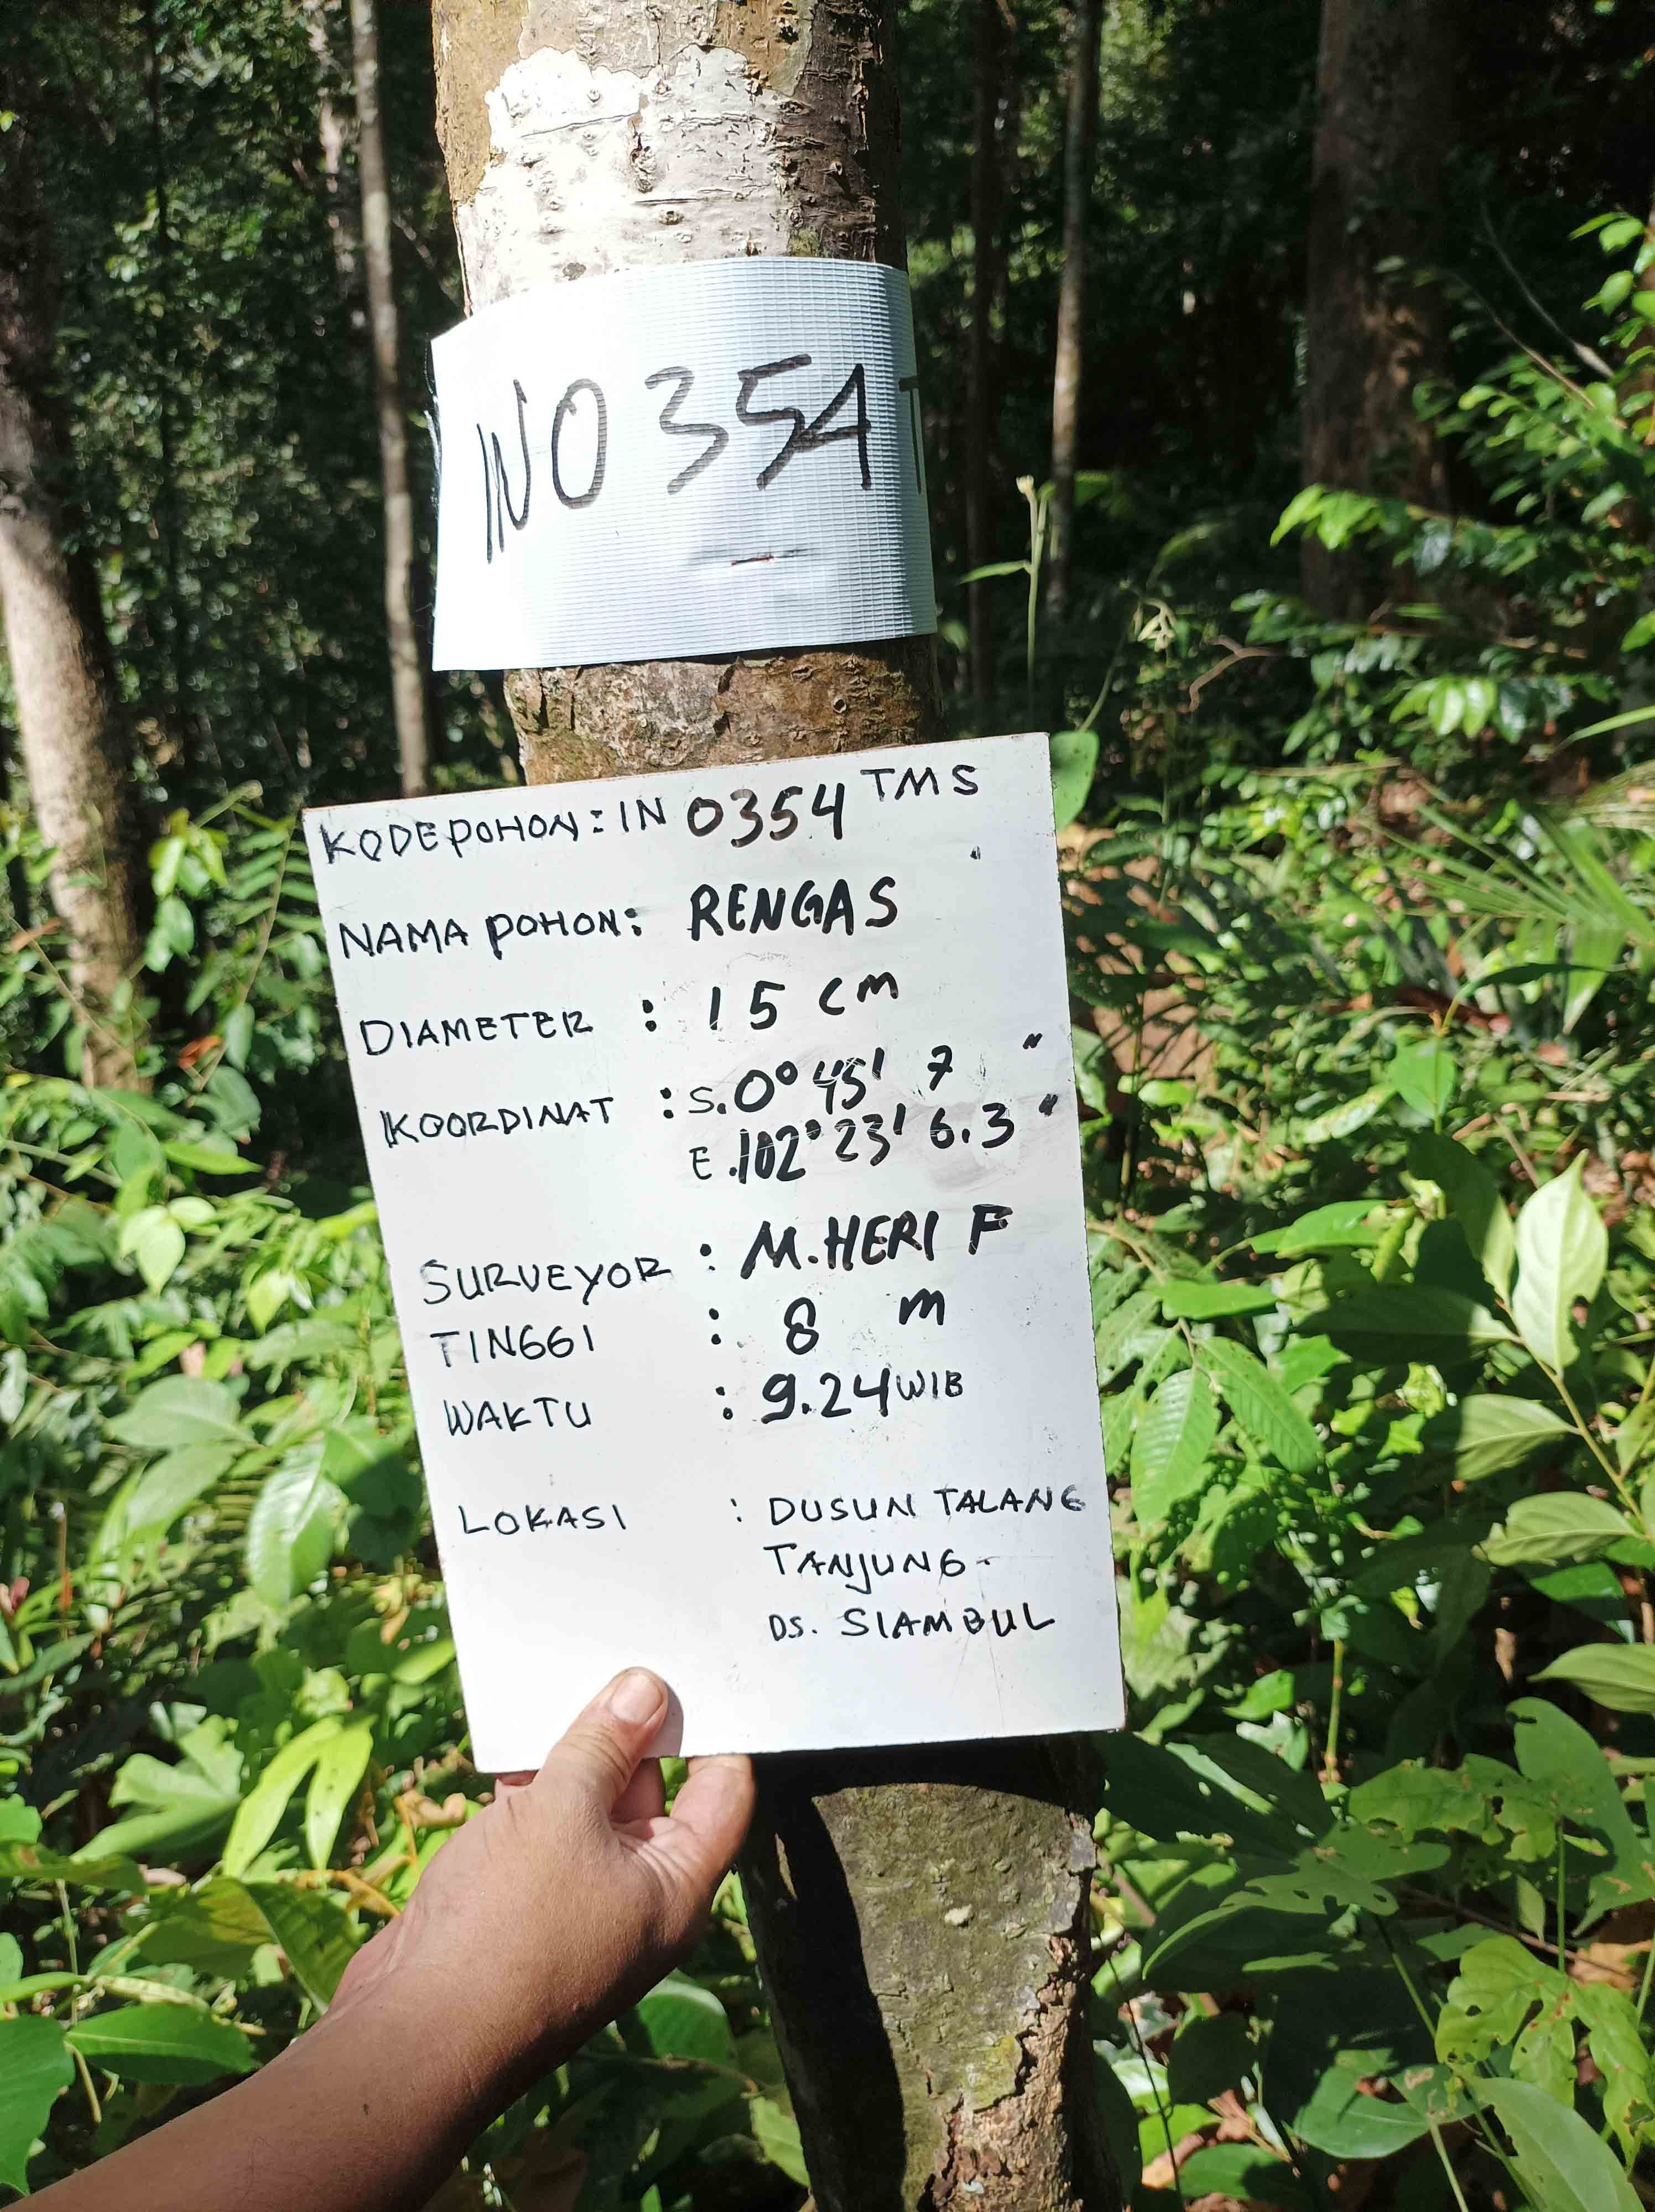 IN 0354 T
KODE POHON : IN 0354 TMS
NAMA POHON : RENGAS
DIAMETER : 15 cm
KOORDINAT : S. 0° 45' 7 "
E. 102° 23' 6.3 "
SURVEYOR : M. HERI F
TINGGI : 8 m
WAKTU : 9.24 WIB
LOKASI : DUSUN TALANG
TANJUNG -
DS. SIAMBUL